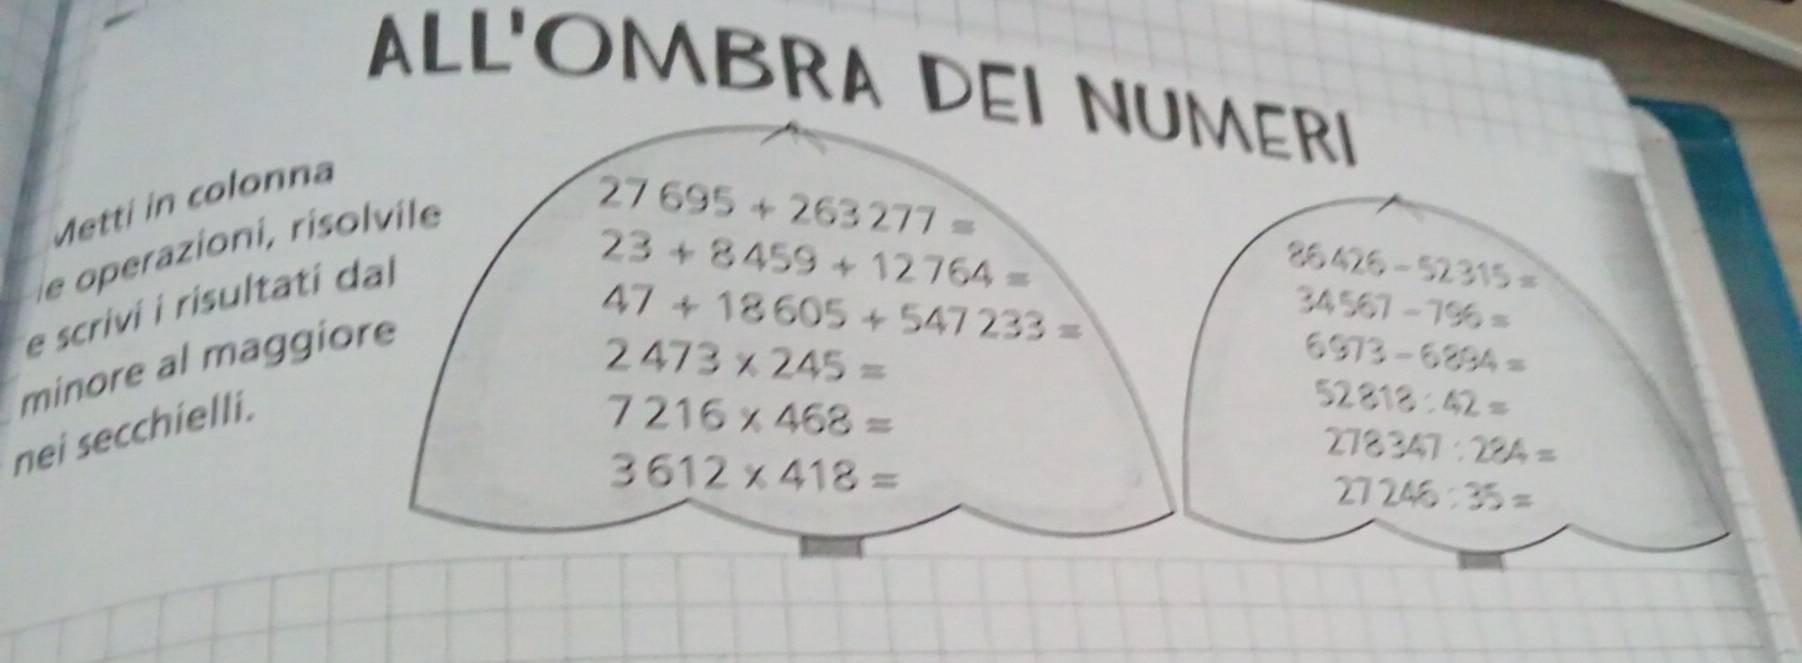 ALL'OMBRA DEI NUMERI
Metti in colonna
le operazioni, risolvile
e scrivi i risultati dal
minore al maggiore
nei secchielli.
27 695 + 263 277 =
23 + 8 459 + 12 764 =
47 + 18 605 + 547 233 =
2 473 x 245 =
7 216 x 468 =
3 612 x 418 =
86 426 - 52 315 =
34 567 - 796 =
6 973 - 6 894 =
52 818 : 42 =
278 347 : 284 =
27 246 : 35 =